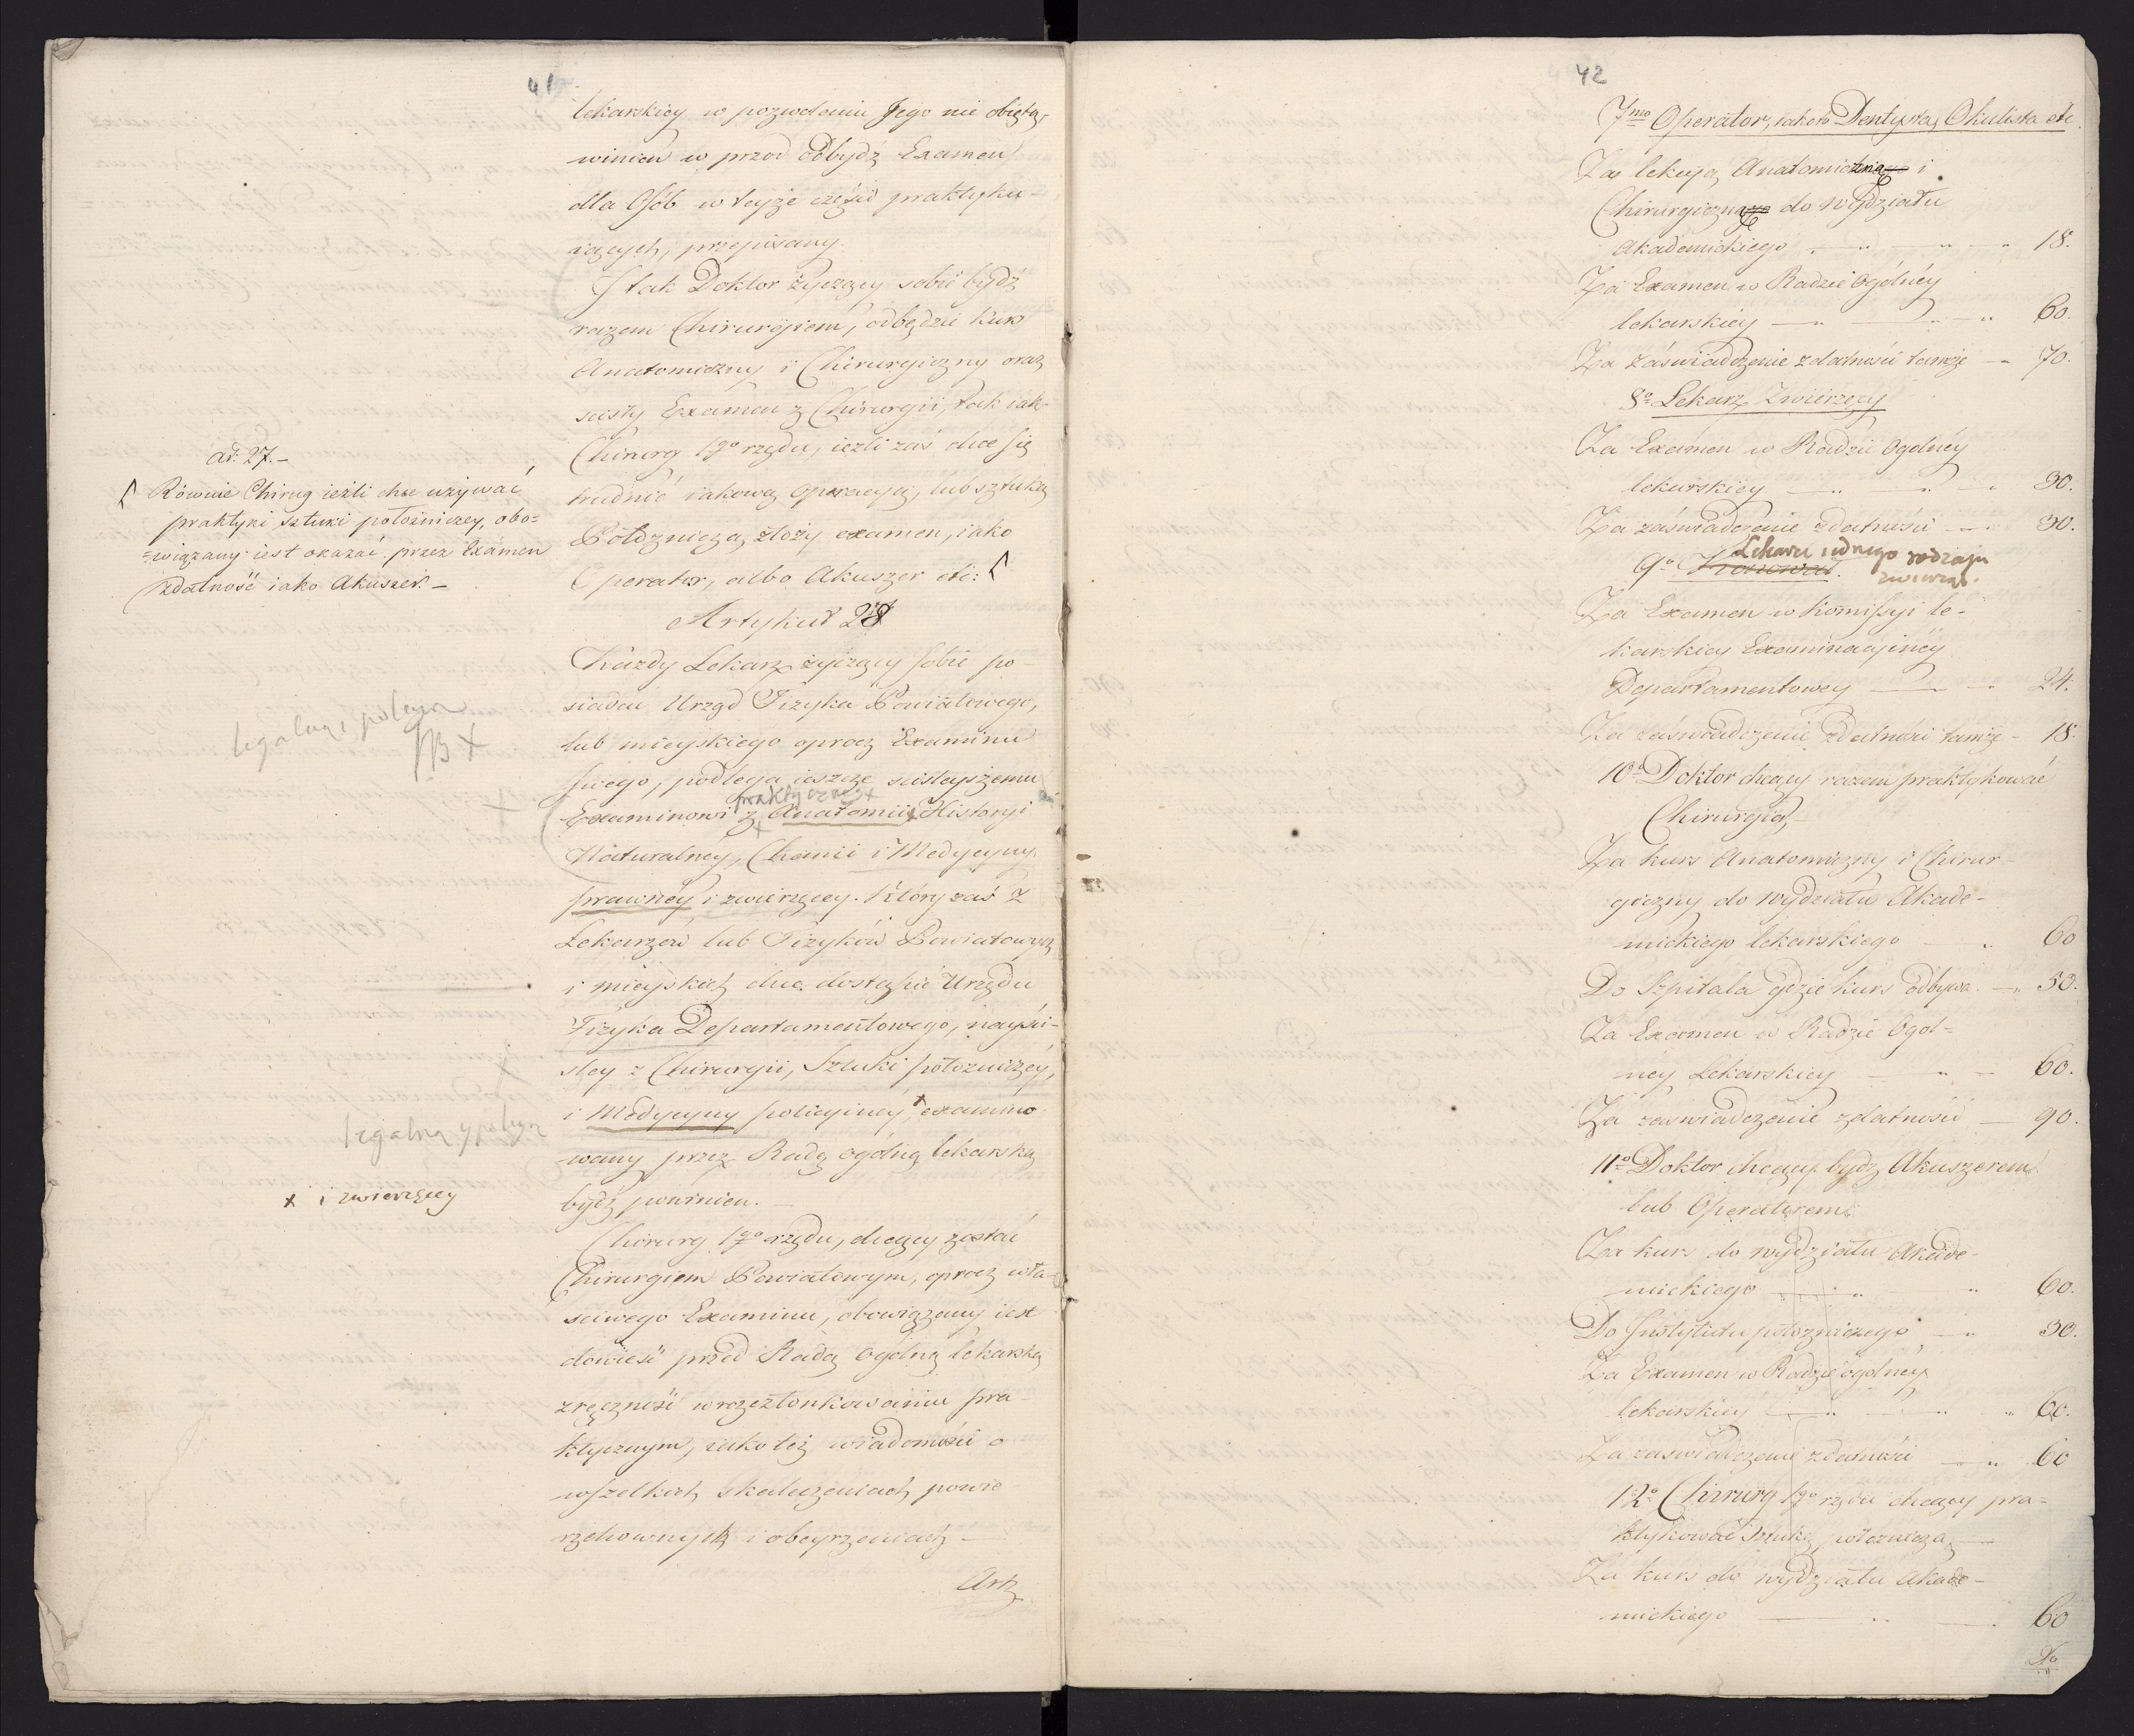 41
lekarskiey w pozwoleniu Jego nie obiętą,
winien w przod odbydź Examen
dla Osób w teyże części praktyku-
iących, przepisany.
I tak Doktor życzący sobie bydź
razem Chirurgiem, odbędzie kurs
Anatomiczny i Chirurgiczny oraz
scisły Examen z Chirurgii, tak iak
Chirurg 1go rzędu, ieżli zaś chce się
trudnić iakową operacyą, lub sztuką
Położniczą, złoży examen, iako
Operator, albo Akuszer etc:
ad: 27.-
Równie Chirug ieżli chce używać
praktyki sztuki położniczey, obo=
=wiązany iest okazać przez Examen
zdatność iako Akuszer.-
Artykuł 28
Każdy Lekarz życzący sobie po-
siadać Urząd Fizyka Powiatowego,
lub mieyskiego oprocz Examinu
swego, podlega ieszcze scisleyszemu
praktyczney
Examinowi z Anatomii, Historyi
Naturalney, Chemii i Medycyny
prawney i zwierzęcey. Który zaś z
Lekarzów lub Fizyków Powiatowych
i mieyskich chce dostąpić Urzędu
Fizyka Departamentowego, nayści-
sley z Chirurgii, Sztuki położniczey,
i Medycyny policyiney, x examino-
wany przez Radę ogólną lekarską
bydź powinien.-
legalney policyi
x i zwierzęcey
Chirurg 1go rzędu, chcący zostać
Chirurgiem Powiatowym, oprocz wła-
sciwego Examinu, obowiązany iest
dowieść przed Radą Ogólną lekarską
zręczność w rozczłonkowaniu pra-
ktycznym, iako też wiadomości o
wszelkich skaleczeniach powie-
rzchownych i obeyrzeniach-
Art
42
7mo Operator, iako to Dentysta, Okulista etc
Za lekcyą Anatomiczną i
Chirurgiczną do Wydziału
Akademickiego 18.
Za Examen w Radzie Ogólney
lekarskiey 60.
Za zaświadczenie zdatności tamże 70.
8o Lekarz Zwierzęcy
Za Examen w Radzie Ogolney
lekarskiey 30.
Za zaświadczenie zdatności 30.
Lekarz iednego rodzaju
9o Konował. zwierząt.
Za Examen w Komissyi le-
karskiey Examinacyiney
Departamentowey 24.
Za zaświadczenie zdatności tamże 18.
10o Doktor chcący razem praktykować
Chirurgią,
Za kurs Anatomiczny i Chirur-
giczny do Wydziału Akade-
mickiego lekarskiego 60
Do Szpitala gdzie kurs odbywa 53.
Za Examen w Radzie Ogol=
ney Lekarskiey 60.
Za zaświadczenie zdatności 90.
11o Doktor chcący bydz Akuszerem
lub Operatorem
Za kurs do wydziału Akade-
mickiego 60.
Do Instytutu położniczego 30.
Za Examen w Radzie ogolney
lekarskiey 60.
Za zaświadczenie zdatności 60
12o Chirurg 1go rzędu chcący pra=
ktykować Sztukę położniczą
Za kurs do wydziału Akade-
mickiego 60
Do